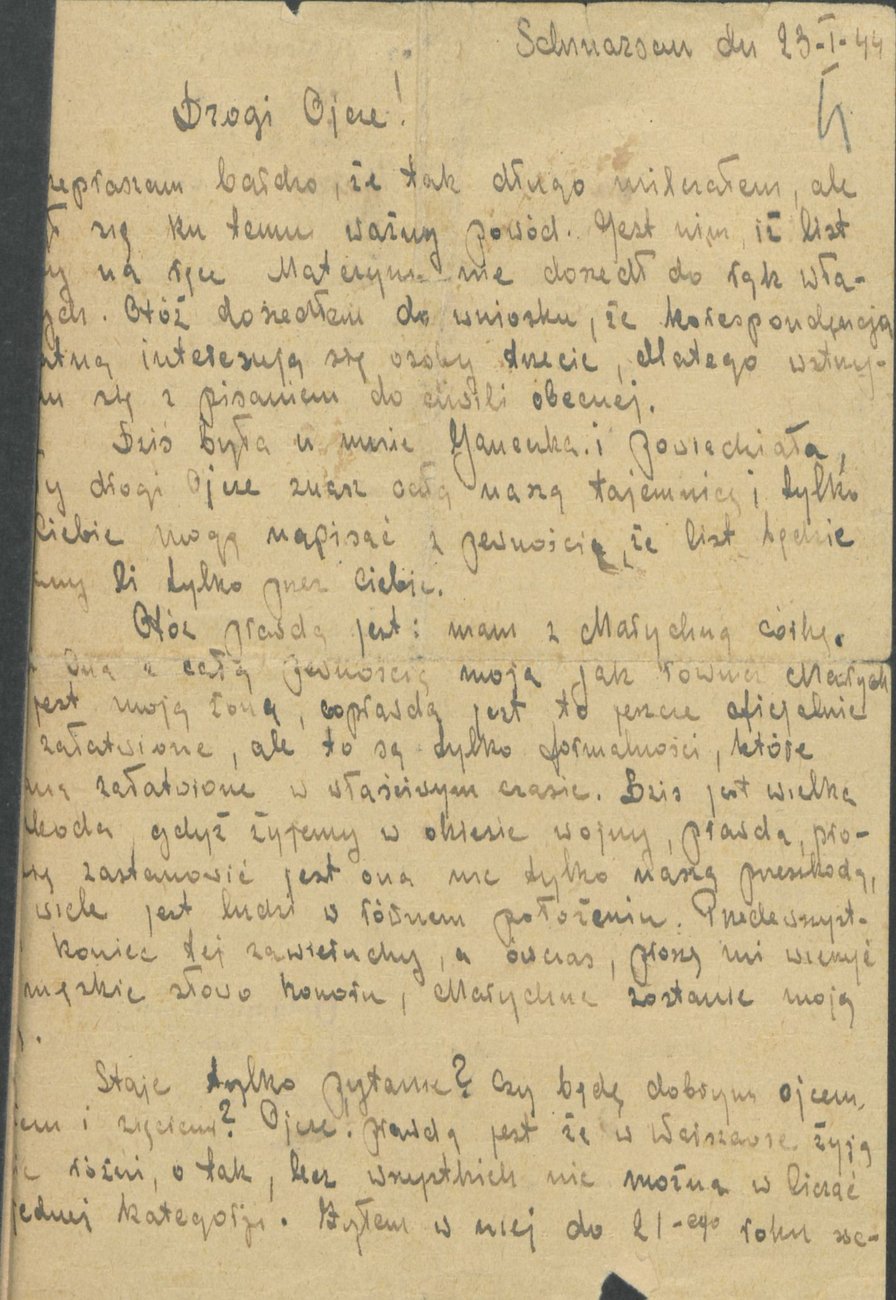 Schwarsau dn 23-I-44
Drogi Ojcze!
zepraszam bardzo, że tak długo milczałem, ale
się ku temu ważny powód. Jest nim, iż list
y na ręce Matczyne nie doszedł do rąk wła-
ych. Otóż doszedłem do wniosku, że korespondencją
atną interesują się osoby trzecie, dlatego wstrzy-
m się z pisaniem do chwili obecnej.
Dziś była u mnie Janeczka i powiedziała,
y drogi Ojcze znasz całą naszą tajemnicę i tylko
Ciebie mogę napisać z pewnością, że list będzie
any li tylko przez Ciebie.
Otóż prawdą jest: mam z Marychną córkę.
z całą pewnością moja jak również Marych
jest moją żoną, coprawda jest to jeszcze oficjalnie
załatwione, ale to są tylko formalności, które
aną załatwione w właściwym czasie. Dziś jest wielka
zkoda, gdyż żyjemy w okresie wojny, prawda, pro-
ię zastanowić jest ona nie tylko naszą przeszkodą,
wiele jest ludzi w różnem położeniu. Przedewszyst-
koniec tej zawieruchy, a ówczas, proszę mi wierzyć
męskie słowo honoru, Marychna zostanie moją
.
Staje tylko pytanie? czy będę dobrym ojcem,
em i zięciem? Ojcze. prawdą jest że w Warszawie żyją
różni, o tak, lecz wszystkich nie można w liczać
jednej kategorji. Byłem w niej do 21-ego roku we-